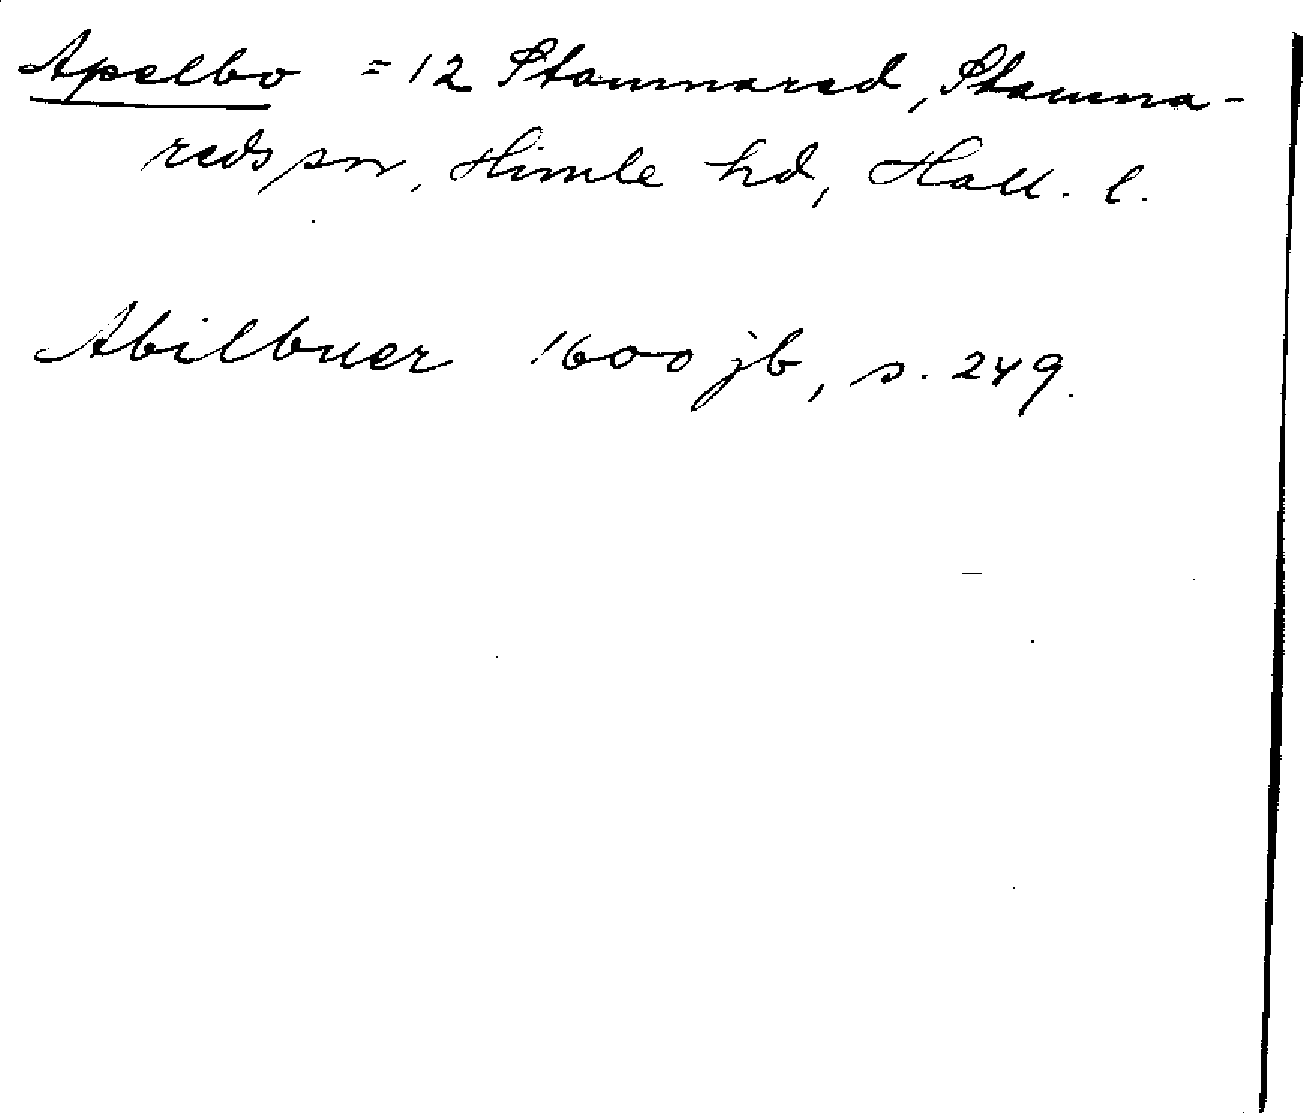 Apelbo = 12 Stamnared, Stamna-
reds sn, Himle hd, Hall. l.
Abilbuer 1600 jb, s. 249.